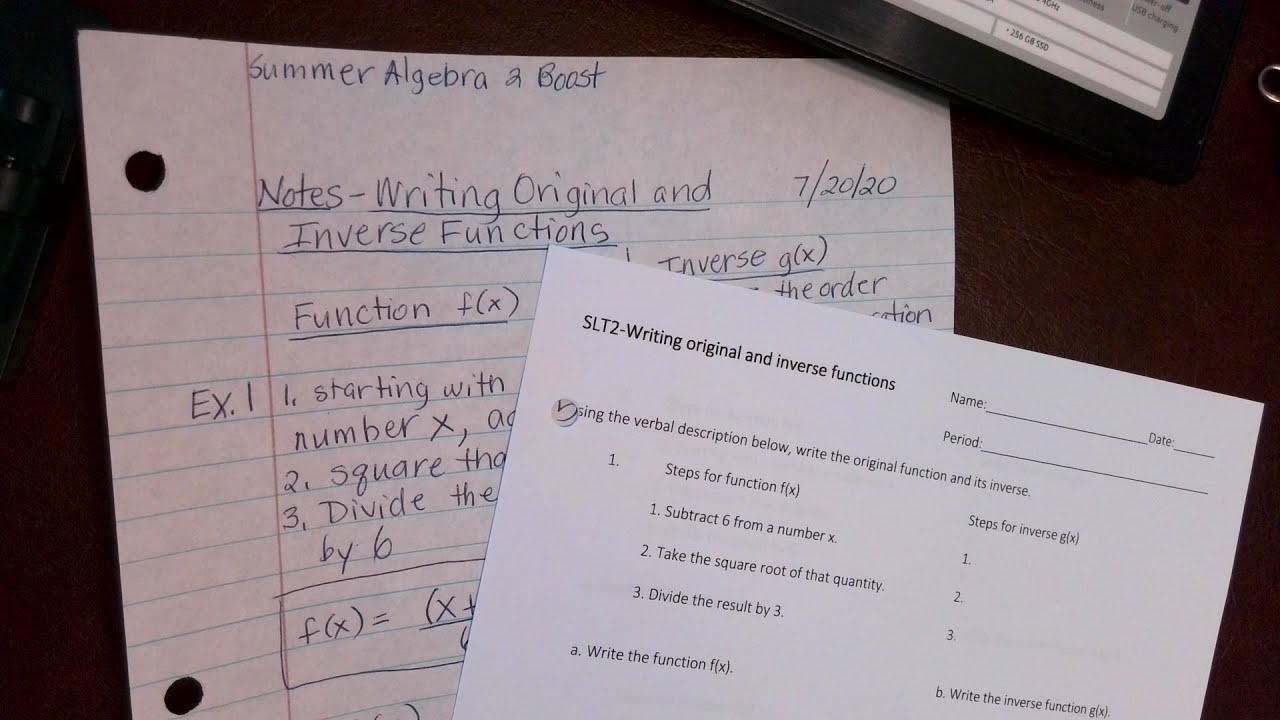 4GHz
USB charging
• 256 GB SSD
Summer Algebra 2 Boost
Notes - Writing Original and 7/20/20
Inverse Functions
Inverse g(x)
the order
Function f(x)
Ex. 1 1. starting with
number x,
2. square
3. Divide the
by 6
f(x) = (x+
SLT2-Writing original and inverse functions
Name: Date:
Period:
sing the verbal description below, write the original function and its inverse.
1. Steps for function f(x)
1. Subtract 6 from a number x.
2. Take the square root of that quantity.
3. Divide the result by 3.
a. Write the function f(x).
Steps for inverse g(x)
1.
2.
3.
b. Write the inverse function g(x).